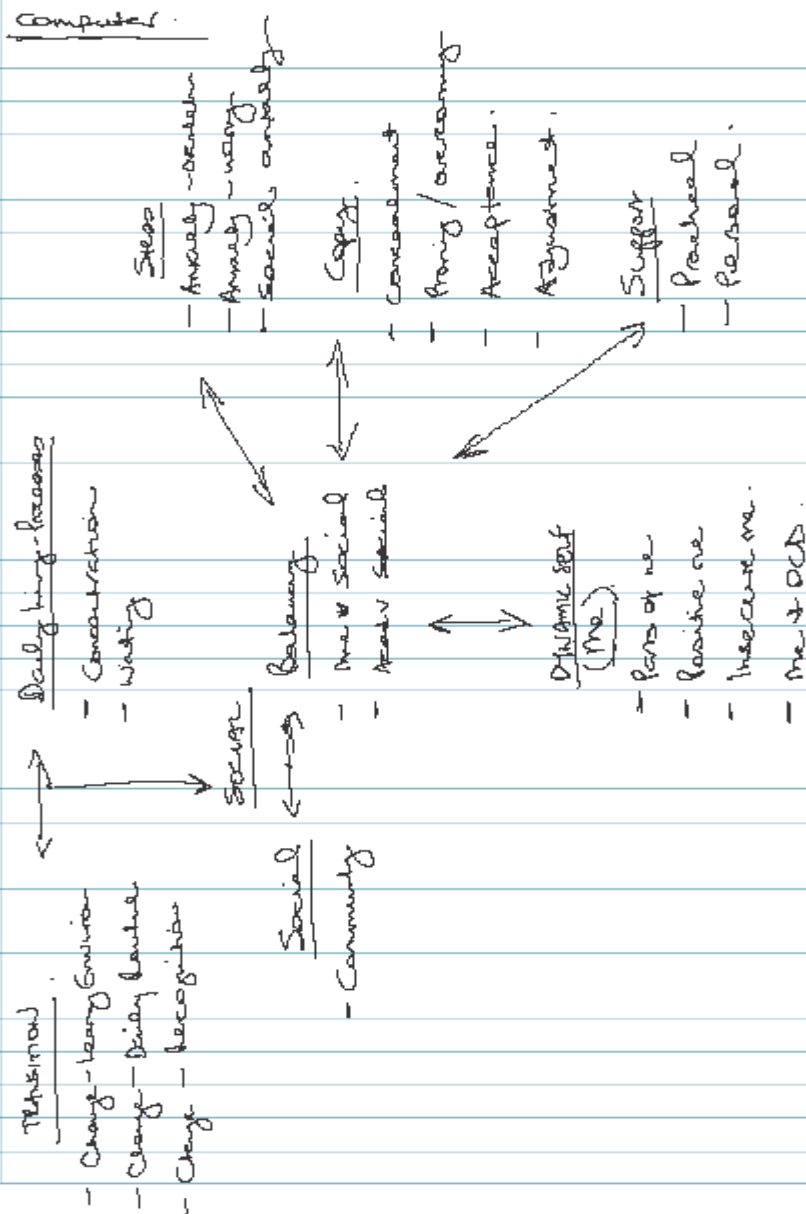 Computer.
TRANSITION
- Change - Learng Environ
- Change - Daily Routine
- Change - Recognition
Daily living-Processes
- Concentration
- Writing
SOCIAL
Social
- Community
Balancing
- me v Social
- Acad v Social
DYNAMIC SELF
(Me)
- Parts of me
- Positive me
- Insecure me.
- Me + OCD.
Stress
- Anxiety -
- Anxiety -
- Social anxiety
Coping.
- Concealment
- / overcoming
- Acceptance.
- Adjustment.
Support
- Practical
- Personal.